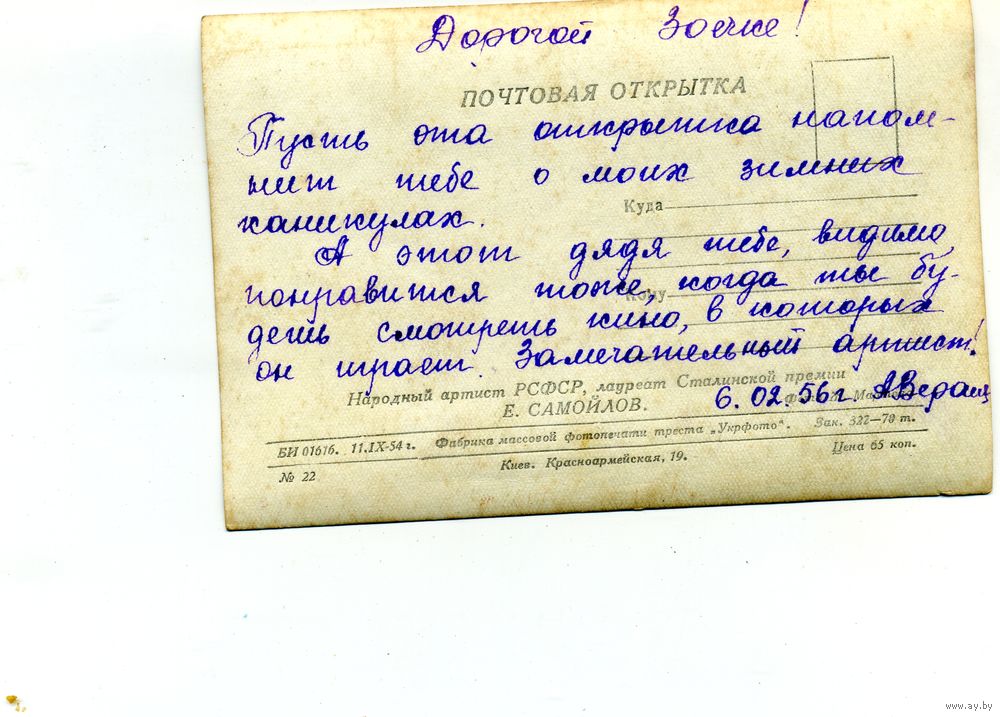 Дорогой Зоечке!
ПОЧТОВАЯ ОТКРЫТКА
Пусть эта открытка напом-
нит тебе о моих зимних
Куда
каникулах.
А этот дядя тебе, видимо,
Кому
понравится тоже, когда ты бу-
дешь смотреть кино, в которых
он играет. Замечательный артист!
Народный артист РСФСР, лауреат Сталинской премии
Е. САМОЙЛОВ.
6.02.56 г.
БИ 01616. 11.IX-54 г. Фабрика массовой фотопечати треста „Укрфото“. Зак. 322—70 т.
№ 22 Киев. Красноармейская, 19. Цена 65 коп.
www.ay.by